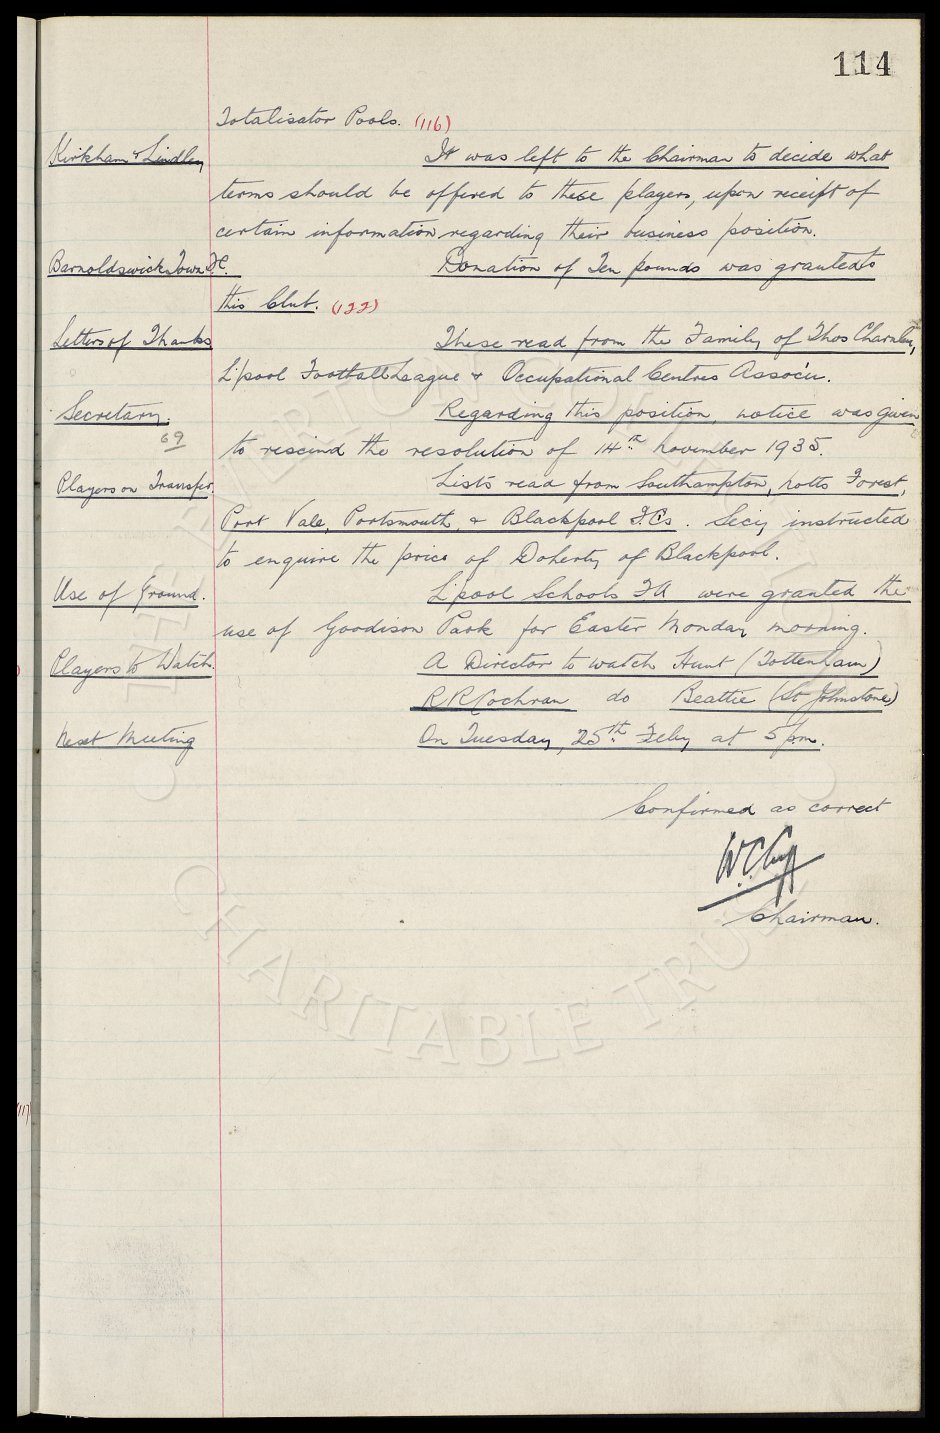 114
Totalisator Pools. (116)
Kirkham & Lindley It was left to the Chairman to decide what
terms should be offered to these players, upon receipt of
certain information regarding their business position.
Barnoldswick Town F.C. Donation of Ten pounds was granted to
this Club. (122)
Letters of Thanks These read from the Family of Thos Charnley,
L'pool Football League & Occupational Centres Assoc'n.
Secretary. Regarding this position, notice was given
69
to rescind the resolution of 14th November 1935.
Players on Transfer. Lists read from Southampton, Notts Forest,
Port Vale, Portsmouth, & Blackpool F.Cs. Secy instructed
to enquire the price of Doherty of Blackpool.
Use of Ground. L'pool Schools FA were granted the
use of Goodison Park for Easter Monday morning.
Players to Watch. A Director to watch Hunt (Tottenham)
R R Cochran do Beattie (St Johnstone)
Next Meeting On Tuesday, 25th Feby at 5 p.m.
Confirmed as correct
W.C. Cuff
Chairman.
EVERTON COLLECTION
CHARITABLE TRUST